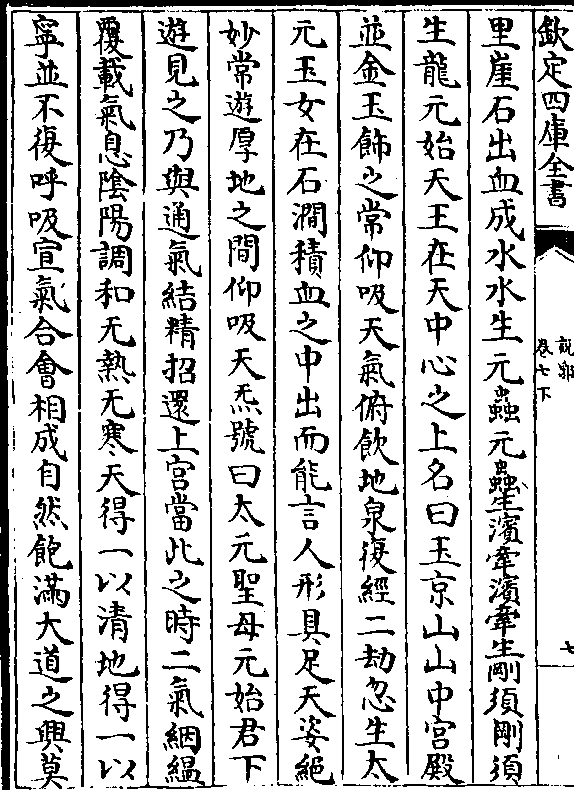 欽定四庫全書
說郛
卷七下
七
里崖石出血成水水生元蟲元蟲生濱牽濱牽生剛須剛須
生龍元始天王在天中心之上名曰玉京山山中宮殿
並金玉飾之常仰吸天氣俯飲地泉復經二劫忽生太
元玉女在石澗積血之中出而能言人形具足天姿絕
妙常遊厚地之間仰吸天炁號曰太元聖母元始君下
遊見之乃與通氣結精招還上宮當此之時二氣絪緼
覆載氣息陰陽調和无熱无寒天得一以清地得一以
寧並不復呼吸宣氣合會相成自然飽滿大道之興莫